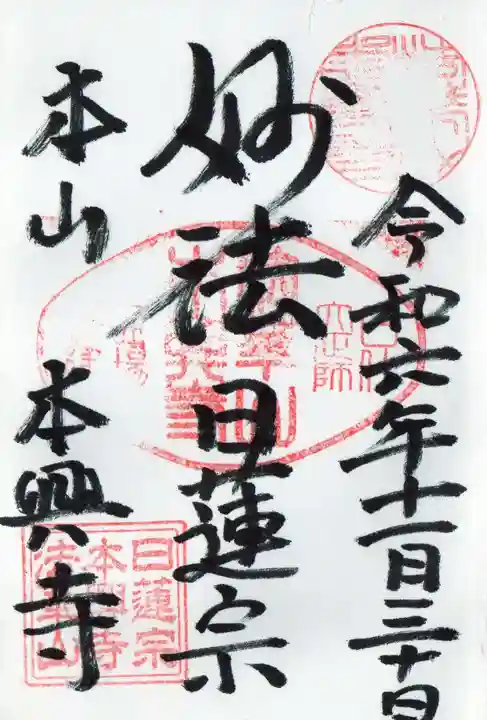 令和六年十一月三十日
妙法
日蓮宗
本山 本興寺
日蓮宗
本興寺
法華山